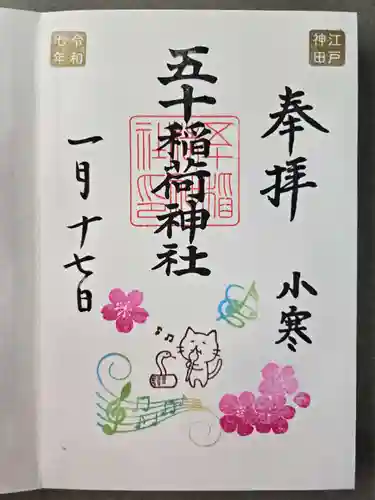 江戸
神田
奉拝
小寒
五十稲荷神社
令和
七年
一月十七日